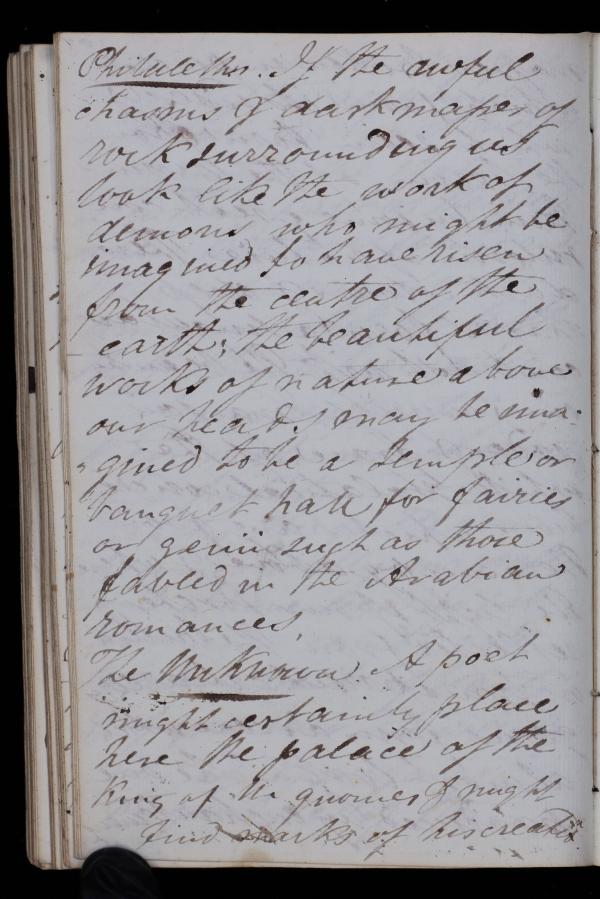 Philalethes. If the awful
chasms & dark masses of
rock surrounding us
look like the work of
demons who might be
imagined to have risen
from the centre of the
earth; the beautiful
works of nature above
our heads may be ima-
gined to be a temple or
banquet hall for fairies
or genii such as those
fabled in the Arabian
romances.
The Unknown. A poet
might certainly place
here the palace of the
King of the gnomes & might
find marks of his creative